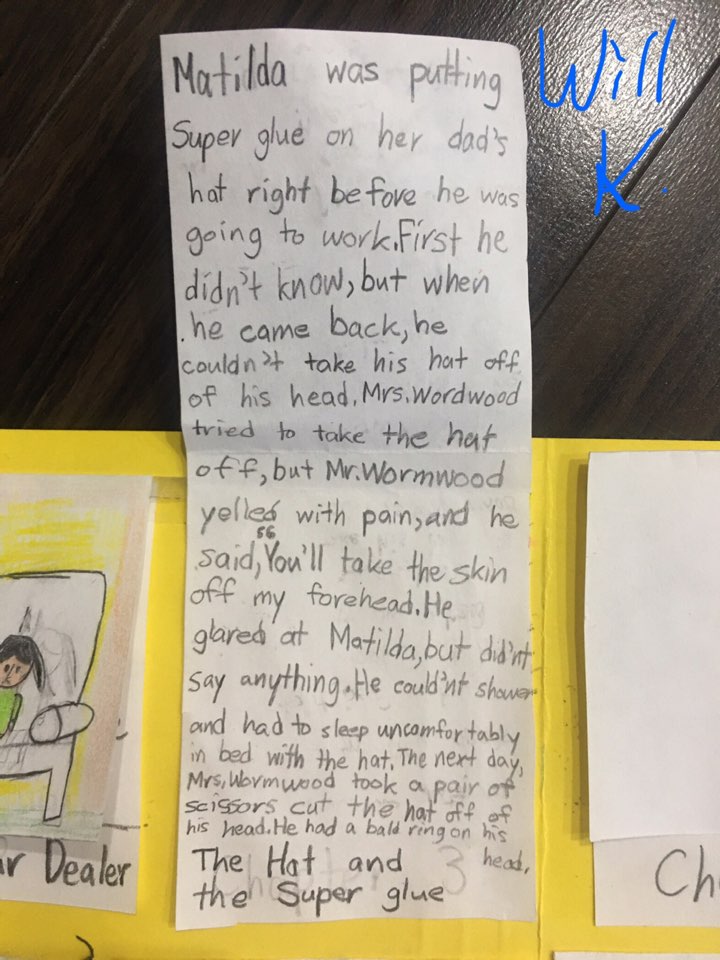 Will
K.
Matilda was putting
Super glue on her dad's
hat right before he was
going to work. First he
didn't know, but when
he came back, he
couldn't take his hat off
of his head. Mrs. Wordwood
tried to take the hat
off, but Mr. Wormwood
yelled with pain, and he
said, "You'll take the skin
off my forehead. He
glared at Matilda, but did'nt
say anything. He could'nt shower
and had to sleep uncomfortably
in bed with the hat. The next day,
Mrs. Wormwood took a pair of
scissors cut the hat off of
his head. He had a bald ring on his
head.
The Hat and
the Super glue
3
r Dealer
Ch